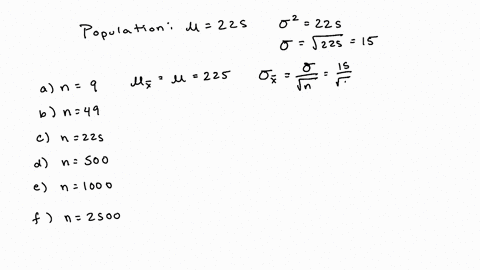 Population: μ = 225 σ² = 225
σ = √225 = 15
a) n = 9 μx̄ = μ = 225 σx̄ = σ/√n = 15/√
b) n = 49
c) n = 225
d) n = 500
e) n = 1000
f) n = 2500